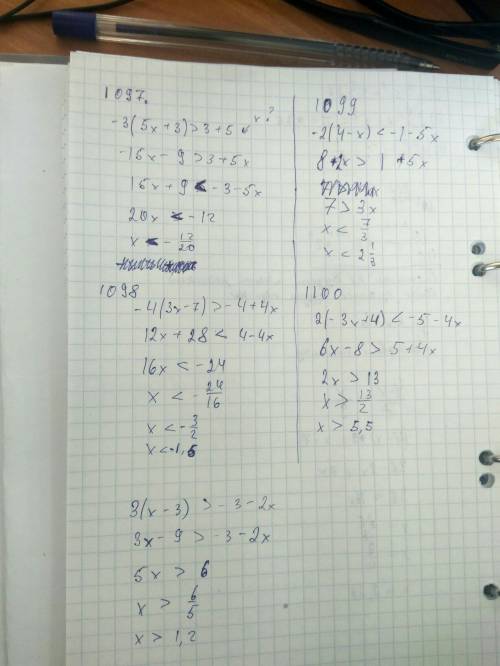 1097.
-3(5x+3)>3+5 x?
-15x-9>3+5x
15x+9<-3-5x
20x<-12
x<-12/20
1098
-4(3x-7)>-4+4x
12x+28<4-4x
16x<-24
x<-24/16
x<-3/2
x<-1,5
3(x-3)>-3-2x
3x-9>-3-2x
5x>6
x>6/5
x>1,2
1099
-2(4-x)<-1-5x
8-2x>1+5x
7>3x
x<7/3
x<2 1/3
1100
2(-3x+4)<-5-4x
6x-8>5+4x
2x>13
x>13/2
x>5,5